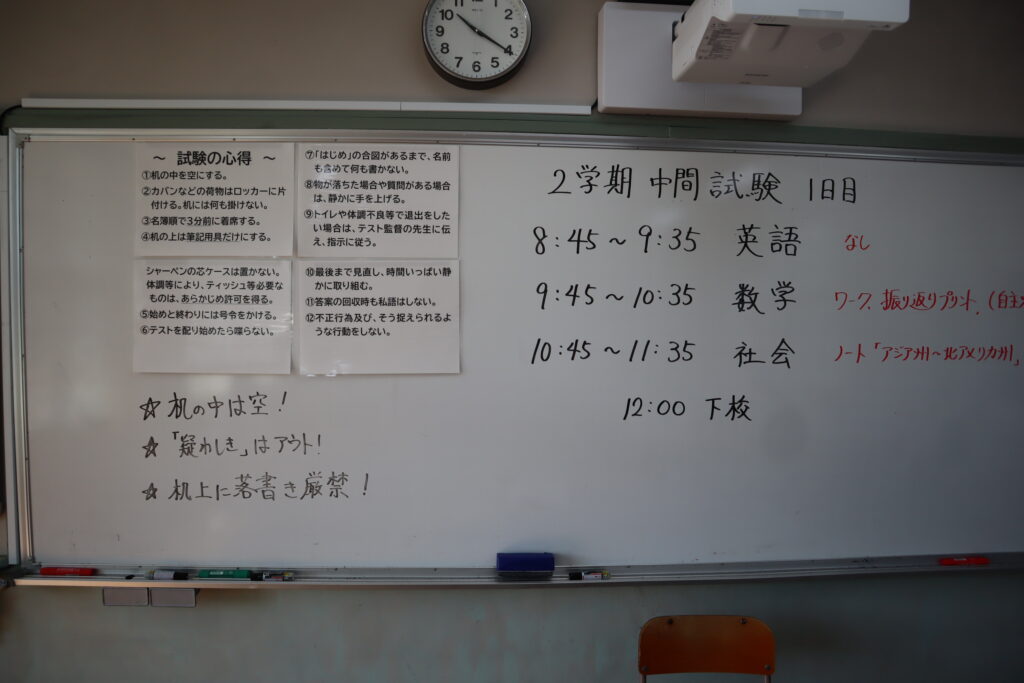 10
11
2
9
3
8
4
7
6
5
～ 試験の心得 ～
①机の中を空にする。
②カバンなどの荷物はロッカーに片
付ける。机には何も掛けない。
③名簿順で3分前に着席する。
④机の上は筆記用具だけにする。
シャーペンの芯ケースは置かない。
体調等により、ティッシュ等必要な
ものは、あらかじめ許可を得る。
⑤始めと終わりには号令をかける。
⑥テストを配り始めたら喋らない。
⑦「はじめ」の合図があるまで、名前
も含めて何も書かない。
⑧物が落ちた場合や質問がある場合
は、静かに手を上げる。
⑨トイレや体調不良等で退出をした
い場合は、テスト監督の先生に伝
え、指示に従う。
⑩最後まで見直し、時間いっぱい静
かに取り組む。
⑪答案の回収時も私語はしない。
⑫不正行為及び、そう捉えられるよ
うな行動をしない。
☆ 机の中は空！
☆「疑わしき」はアウト！
☆ 机上に落書き厳禁！
2学期 中間試験 1日目
8:45～9:35 英語 なし
9:45～10:35 数学 ワーク、振り返りプリント、(自主
10:45～11:35 社会 ノート「アジア州～北アメリカ州」
12:00 下校